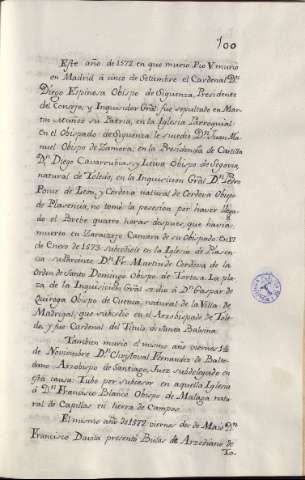 100
Este año de 1572 en que murio Pio V. murio
en Madrid á cinco de Setiembre el Cardenal Dn
Diego Espinosa Obispo de Siguenza, Presidente
del Consejo, y Inquisidor Gral fue sepultado en Mar-
tin Muñoz su Patria, en la Iglesia Parroquial.
en el Obispado de Siguenza le sucedió Dn Juan Ma-
nuel Obispo de Zamora, en la Presidencia de Castilla
Dn Diego Cavarrubias y Leiva Obispo de Segovia,
natural de Toledo, en la Inquisicion Gral Dn Pedro
Ponce de Leon, y Cordova natural de Cordova Obispo
de Plasencia, no tomó la posesion por haver llega-
do el Brebe quatro horas despues, que havia
muerto en Zaraizejo Camara de su Obispado. En 17
de Enero de 1573 subcediole en la Iglesia de Plasen-
cia Dn Fr. Martin de Cordova de la
Orden de Santo Domingo Obispo de Tortosa. La pla-
za de la Inquisicion Gral se dio á Dn Gaspar de
Quiroga Obispo de Cuenca, natural de la Villa de
Madrigal, que subcedio en el Arzobispado de Tole-
do, y fue Cardenal del Titulo de Santa Balvina.
Tambien murio el mismo año viernes 14
de Noviembre Dn Christoval Fernandez de Balto-
dano Arzobispo de Santiago, Juez subdelegado en
esta causa: Tubo por subcesor en aquella Iglesia
á Dn Francisco Blanco Obispo de Malaga natu-
ral de Capillas en tierra de Campos.
El mismo año de 1572 viernes de Maio Dn
Francisco Davila presentó Bulas de Arzediano de
To-